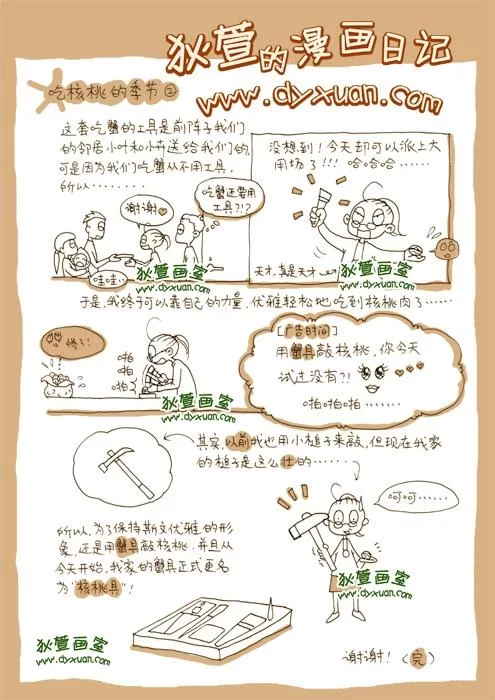 狄萱的漫画日记
www.dyxuan.com
吃核桃的季节②
这套吃蟹的工具是前阵子我们
的邻居小叶和小卉送给我们的,
可是因为我们吃蟹从不用工具,
所以………
谢谢
吃蟹还要用
工具?!?
哇哇…
狄萱画室
www.dyxuan.com
没想到!今天却可以派上大
用场了!!! 哈哈哈……
天才,真是天才……
狄萱画室
www.dyxuan.com
于是,我终于可以靠自己的力量,优雅轻松地吃到核桃肉了……
疼了!
啪
啪
啪
狄萱画室
www.dyxuan.com
[广告时间]
用蟹具敲核桃,你今天
试过没有?!
啪啪啪……
其实,以前我也用小槌子来敲,但现在我家
的槌子是这么壮的……
呵呵……
所以,为了保持斯文优雅的形
象,还是用蟹具敲核桃,并且从
今天开始,我家的蟹具正式更名
为“核桃具”!
狄萱画室
www.dyxuan.com
狄萱画室
www.dyxuan.com
谢谢!(完)